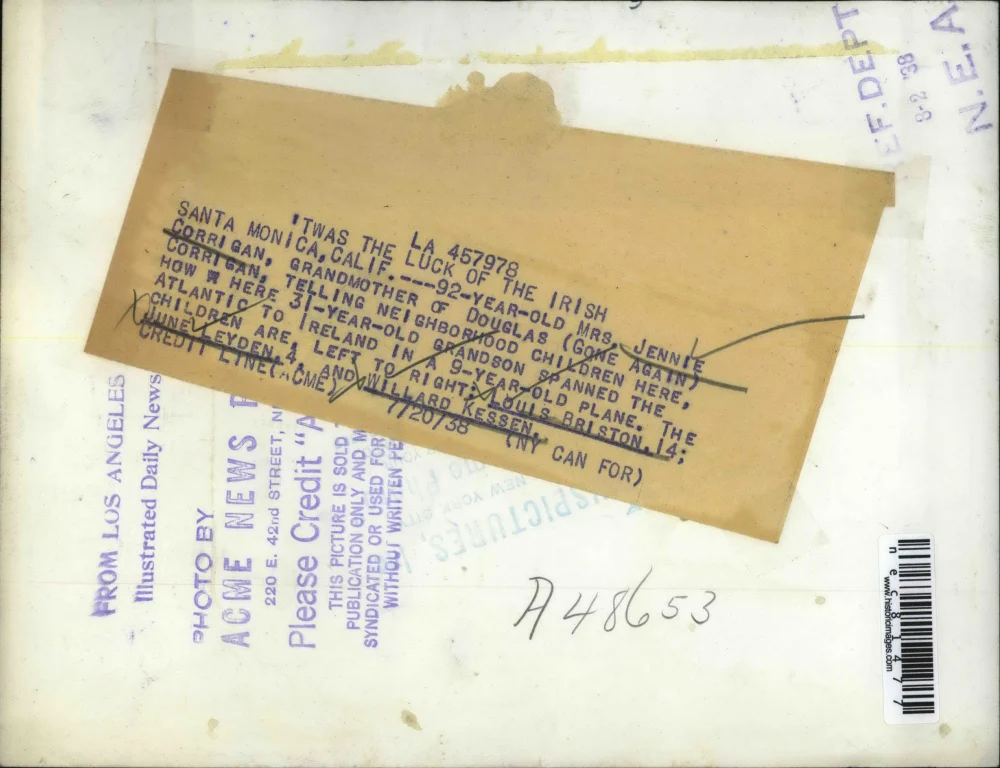 REF. DEPT
8-2 '38
N.E.A
LA 457978
'TWAS THE LUCK OF THE IRISH
SANTA MONICA, CALIF.---92-YEAR-OLD MRS. JENNIE
CORRIGAN, GRANDMOTHER OF DOUGLAS (GONE AGAIN)
CORRIGAN, TELLING NEIGHBORHOOD CHILDREN HERE,
HOW W HERE 31-YEAR-OLD GRANDSON SPANNED THE
ATLANTIC TO IRELAND IN A 9-YEAR-OLD PLANE. THE
CHILDREN ARE, LEFT TO RIGHT: LOUIS BRISTON, 14;
JUNE LEYDEN, 4, AND WILLARD KESSEN.
CREDIT LINE (ACME) 7/20/38 (NY CAN FOR)
FROM LOS ANGELES
Illustrated Daily News
PHOTO BY
ACME NEWS
220 E. 42nd STREET,
Please Credit "A
THIS PICTURE IS SOLD
PUBLICATION ONLY AND
SYNDICATED OR USED FOR
WITHOUT WRITTEN PE
NEW YORK CITY
SPICTURES,
A48653
nec81477
www.historicimages.com